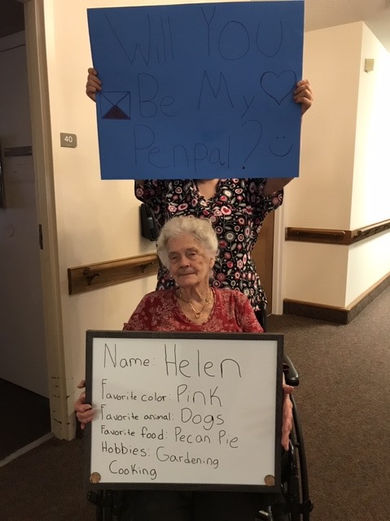 Will You
Be My
Penpal?
40
Name: Helen
Favorite color: Pink
Favorite animal: Dogs
Favorite food: Pecan Pie
Hobbies: Gardening
Cooking